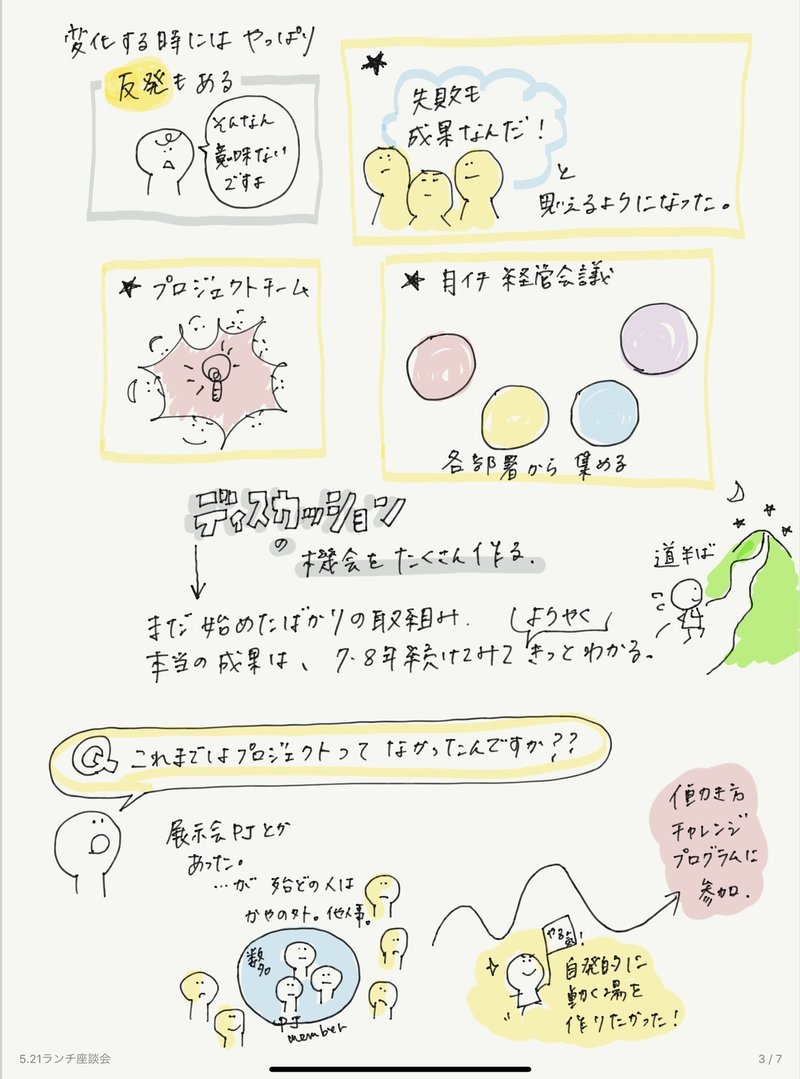 変化する時には やっぱり
反発もある
そんなん
意味ない
ですよ
★
失敗も
成果なんだ!
と
思えるようになった。
★ プロジェクトチーム
★ 月イチ 経営会議
各部署から 集める
ディスカッション
の
機会を たくさん作る.
道半ば
まだ 始めたばかりの取組み.
ようやく
本当の 成果は、7・8年続けてみて きっとわかる。
Q これまではプロジェクトって なかったんですか??
展示会PJとか
あった。
…が 殆どの人は
かやの外。他人事。
数名
PJ
member
やる気!
自発的に
動く場を
作りたかった!
働き方
チャレンジ
プログラムに
参加.
5.21ランチ座談会
3 / 7